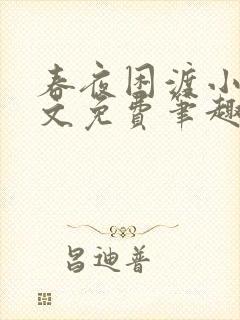 春夜困渡小
文免费笔趣
昌迪普